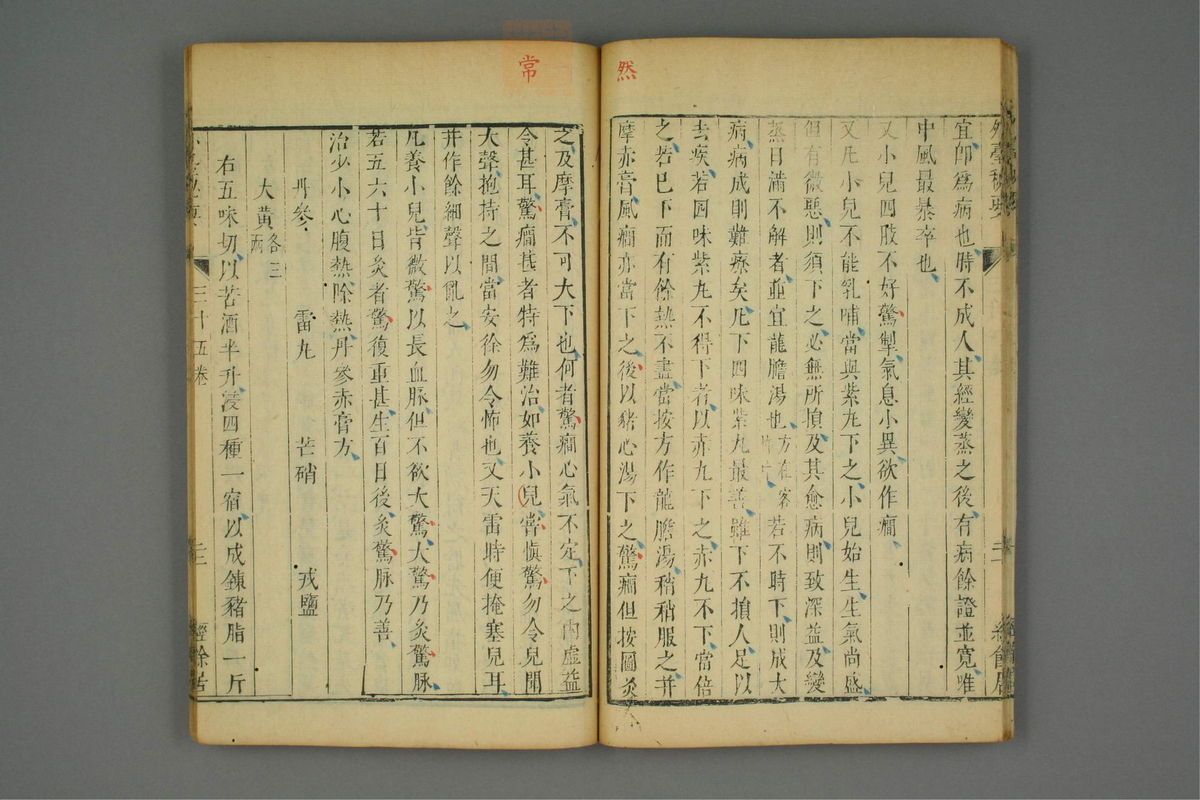 然
外臺秘要
宜即爲病也時不成人其經變蒸之後有病餘證並寬唯
中風最暴卒也
又小兒四肢不好驚掣氣息小異欲作癎
又凡小兒不能乳哺當與紫丸下之小兒始生生氣尚盛
但有微惡則須下之必無所損及其愈病則致深益及變
蒸日滿不解者並宜龍膽湯也方在客若不時下則成大
病病成則難療矣凡下四味紫丸最善雖下不損人足以
去疾若四味紫丸不得下者以赤丸下之赤丸不下當倍
之若已下而有餘熱不盡當按方作龍膽湯稍稍服之并
摩赤膏風癎亦當下之後以豬心湯下之驚癎但按圖灸
常
之及摩膏不可大下也何者驚癎心氣不定下之內虛益
令甚耳驚癎甚者特爲難治如養小兒常慎驚勿令兒聞
大聲抱持之間當安徐勿令怖也又天雷時便掩塞兒耳
并作餘細聲以亂之
凡養小兒皆微驚以長血脉但不欲大驚大驚乃灸驚脉
若五六十日灸者驚復重甚生百日後灸驚脉乃善
治少小心腹熱除熱丹參赤膏方
丹參 雷丸 芒硝 戎鹽
大黃各三兩
右五味切以苦酒半升浸四種一宿以成鍊豬脂一斤
三十五卷 二 經餘居